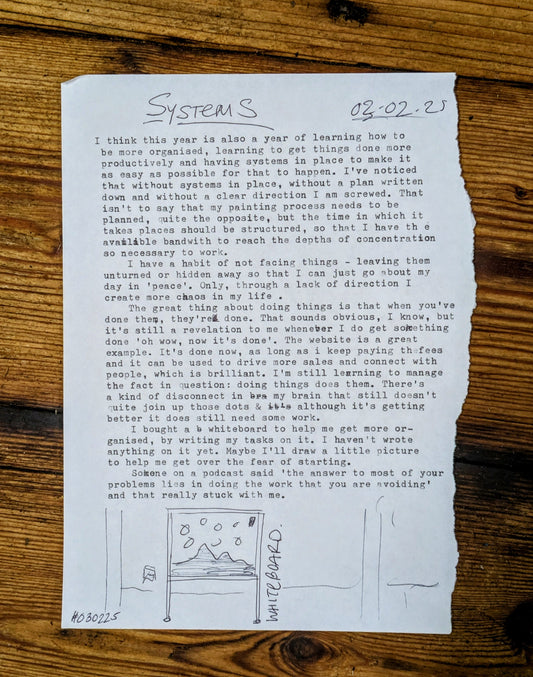 SYSTEMS 03-02-25
I think this year is also a year of learning how to
be more organised, learning to get things done more
productively and having systems in place to make it
as easy as possible for that to happen. I've noticed
that without systems in place, without a plan written
down and without a clear direction I am screwed. That
isn't to say that my painting process needs to be
planned, quite the opposite, but the time in which it
takes places should be structured, so that I have th e
available bandwith to reach the depths of concentration
so necessary to work.
I have a habit of not facing things - leaving them
unturned or hidden away so that I can just go about my
day in 'peace'. Only, through a lack of direction I
create more chaos in my life .
The great thing about doing things is that when you've
done them, they're done. That sounds obvious, I know, but
it's still a revelation to me whenever I do get something
done 'oh wow, now it's done'. The website is a great
example. It's done now, as long as i keep paying thefees
and it can be used to drive more sales and connect with
people, which is brilliant. I'm still learning to manage
the fact in question: doing things does them. There's
a kind of disconnect in bra my brain that still doesn't
quite join up those dots & it's although it's getting
better it does still need some work.
I bought a b whiteboard to help me get more or-
ganised, by writing my tasks on it. I haven't wrote
anything on it yet. Maybe I'll draw a little picture
to help me get over the fear of starting.
Someone on a podcast said 'the answer to most of your
problems lies in doing the work that you are avoiding'
and that really stuck with me.
WHITEBOARD.
#030225